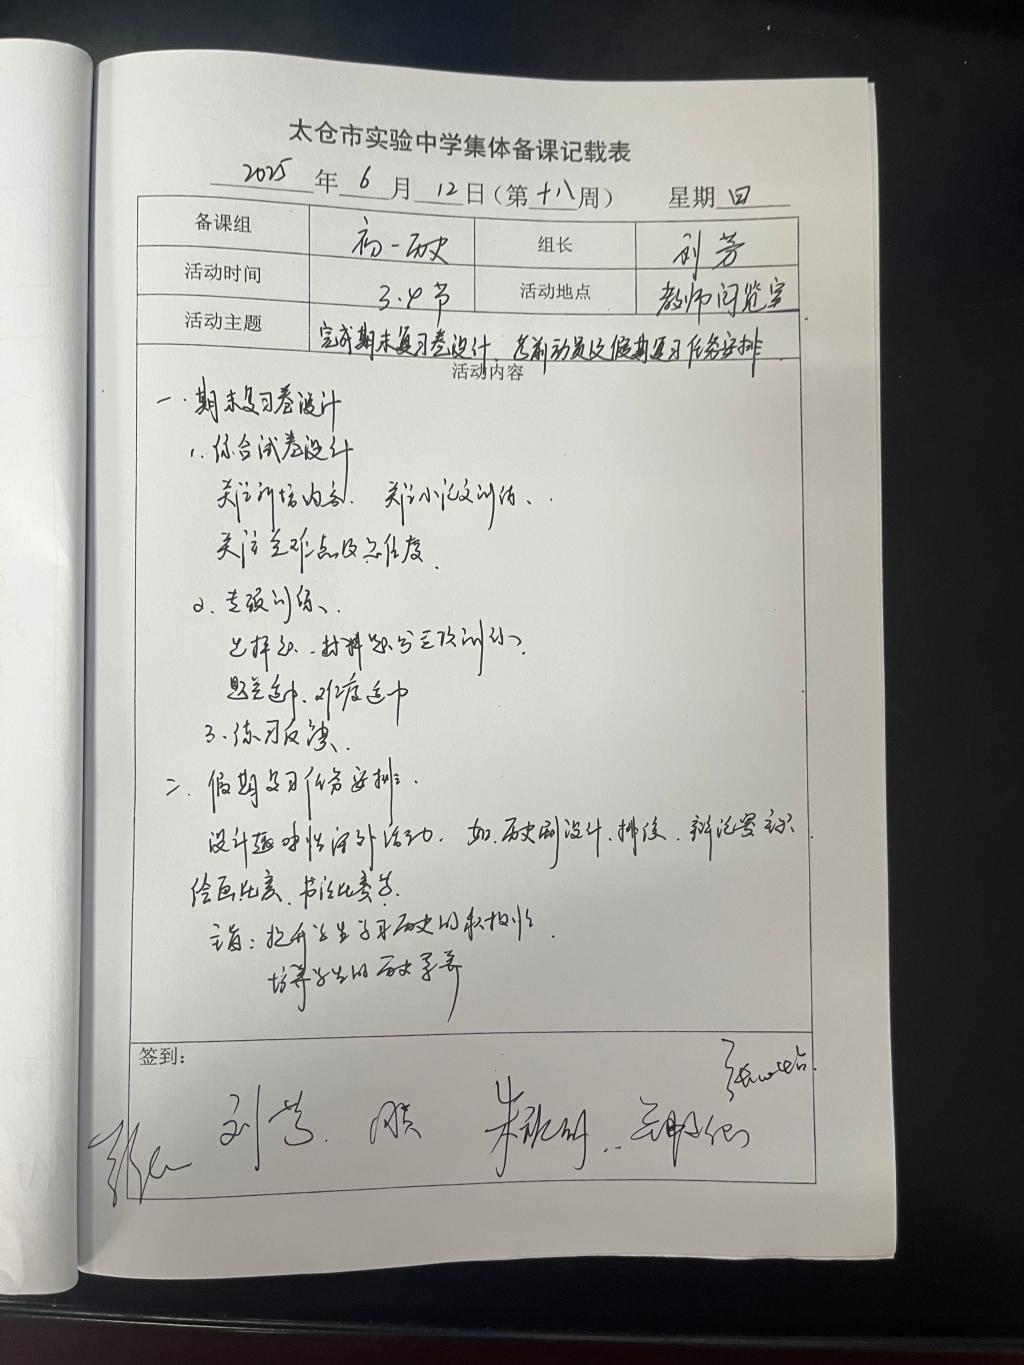 太仓市实验中学集体备课记载表
2025年6月12日(第十八周) 星期四
备课组 初一历史 组长 刘芳
活动时间 3.4节 活动地点 教师阅览室
活动主题 完成期末复习卷设计、考前动员及假期复习任务安排
活动内容
一.期末复习卷设计
1.综合试卷设计
关注内容. 关注小论文训练、
关注重难点及信度.
2.专项训练、
选择题、材料题分三次训练
题量适中、难度适中
3.练习反馈、
二.假期复习任务安排.
设计趣味性课外活动. 如.历史剧设计、排练、辩论赛
绘画比赛、书法比赛等.
主旨:提升学生学习历史的积极性.
培养学生的历史素养
签到:
刘芳